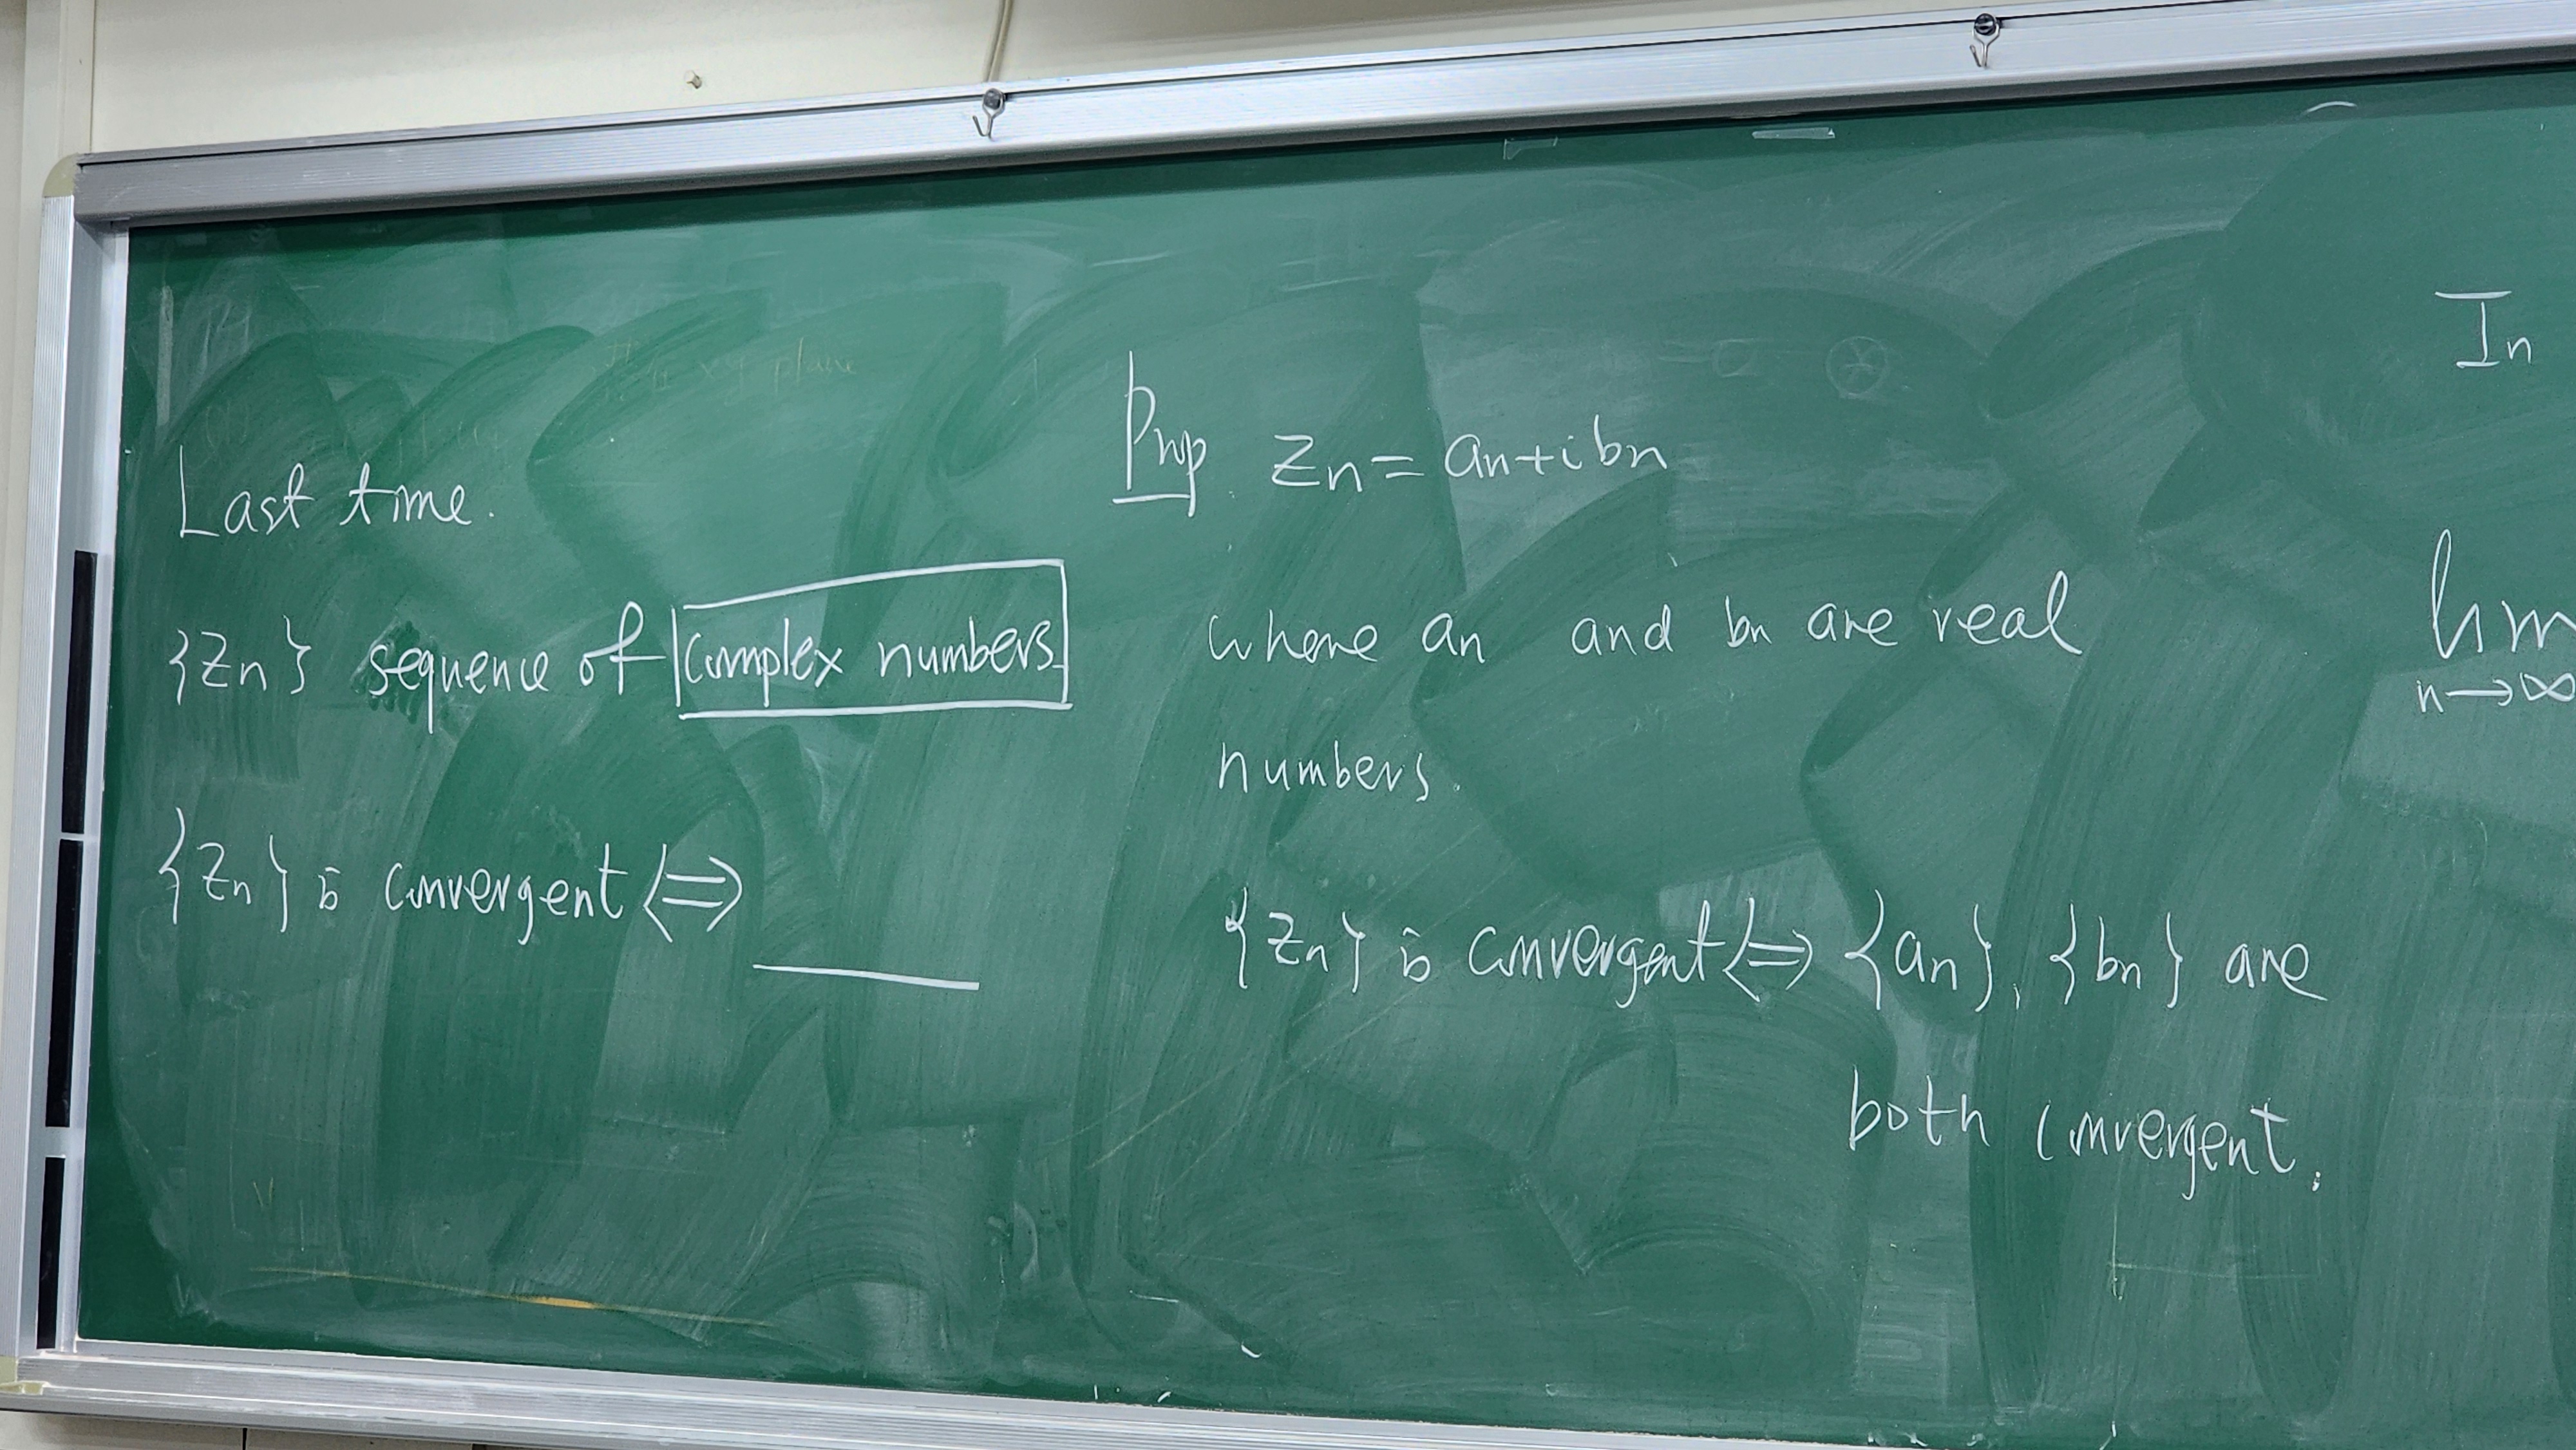 Last time.
{Zn} sequence of complex numbers
{Zn} is convergent ⇔ ____
Prop. Zn = an+ibn
where an and bn are real
numbers.
{Zn} is convergent ⇔ {an}, {bn} are
both convergent.
In
lim
n→∞